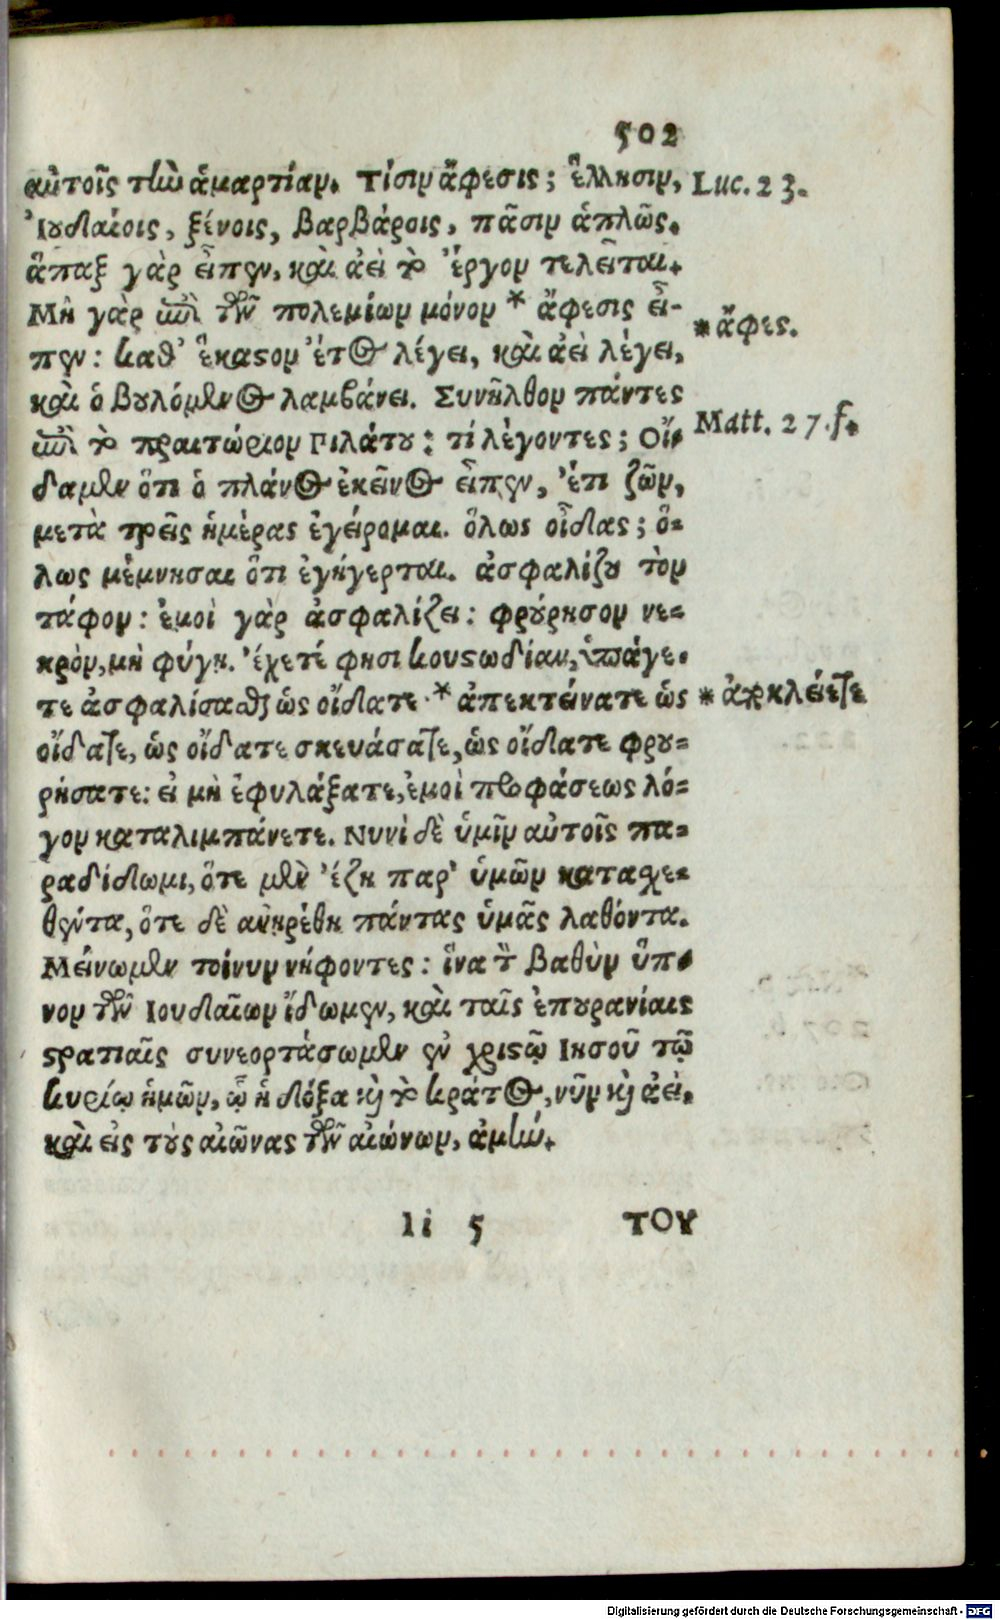 502
αὐτοῖς τὴν ἁμαρτίαν. Τίσιν ἄφεσις; ἕλλησιν, Luc. 23.
Ἰουδαίοις, ξένοις, βαρβάροις, πᾶσιν ἁπλῶς.
ἅπαξ γὰρ εἶπεν, καὶ ἀεὶ τὸ ἔργον τελεῖται.
Μὴ γὰρ ἐπὶ τῶν πολεμίων μόνον * ἄφεσις εἶ-
* ἄφες.
πεν: καθ' ἕκαστον ἔτος λέγει, καὶ ἀεὶ λέγει,
καὶ ὁ βουλόμενος λαμβάνει. Συνῆλθον πάντες
ἐπὶ τὸ πραιτώριον Πιλάτου: τί λέγοντες; Οἴ- Matt. 27.f.
δαμεν ὅτι ὁ πλάνος ἐκεῖνος εἶπεν, ἔτι ζῶν,
μετὰ τρεῖς ἡμέρας ἐγείρομαι. ὅλως οἶδας; ὅ-
λως μέμνησαι ὅτι ἐγήγερται. ἀσφαλίζου τὸν
τάφον: ἐμοὶ γὰρ ἀσφαλίζει: φρούρησον νε-
κρὸν, μὴ φύγῃ. Ἔχετέ φησι κουστωδίαν, ὑπάγε-
τε ἀσφαλίσασθε ὡς οἴδατε * ἀπεκτείνατε ὡς * ἀποκλείετε
οἴδατε, ὡς οἴδατε σκευάσατε, ὡς οἴδατε φρου-
ρήσατε: εἰ μὴ ἐφυλάξατε, ἐμοὶ προφάσεως λό-
γον καταλιμπάνετε. Νυνὶ δὲ ὑμῖν αὐτοῖς πα-
ραδίδωμι, ὅτε μὲν ἔζη παρ' ὑμῶν κατασχε-
θέντα, ὅτε δὲ ἀνῃρέθη πάντας ὑμᾶς λαθόντα.
Μείνωμεν τοίνυν νήφοντες: ἵνα τὸν βαθὺν ὕπ-
νον τῶν Ἰουδαίων ἴδωμεν, καὶ ταῖς ἐπουρανίαις
στρατιαῖς συνεορτάσωμεν ἐν χριστῷ Ἰησοῦ τῷ
κυρίῳ ἡμῶν, ᾧ ἡ δόξα καὶ τὸ κράτος, νῦν καὶ ἀεὶ,
καὶ εἰς τοὺς αἰῶνας τῶν αἰώνων, ἀμήν.
Ii 5 ΤΟΥ
Digitalisierung gefördert durch die Deutsche Forschungsgemeinschaft - DFG